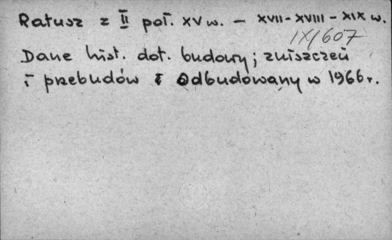 Ratusz z II poł. XV w. – XVII-XVIII-XIX w.
IX/607
Dane hist. dot. budowy; zniszczeń
i przebudów i Odbudowany w 1966r.